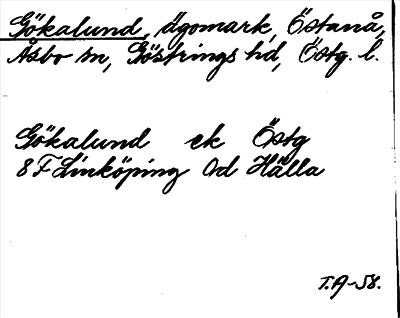 Gökalund, ägomark, Östanå,
Åsbo sn, Göstrings hd, Östg. l.
Gökalund ek Östg
8 F Linköping Od Hälla
T.A-58.